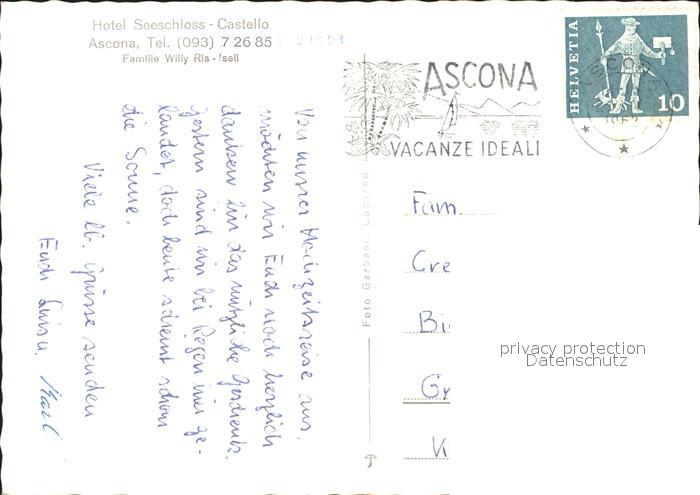 Hotel Seeschloss - Castello
Ascona, Tel. (093) 7 26 85
Familie Willy Ris - Iseli
ASCONA
VACANZE IDEALI
HELVETIA
10
Von unserer Hochzeitsreise aus
möchten wir Euch noch herzlich
danken für das nützliche Geschenk.
Gestern sind wir bei Regen hier ge-
landet, doch heute scheint schon
die Sonne.
Viele lb. Grüsse senden
Euch
Foto Garbani, Locarno
Fam.
Cre
Bi
Gr
privacy protection
Datenschutz